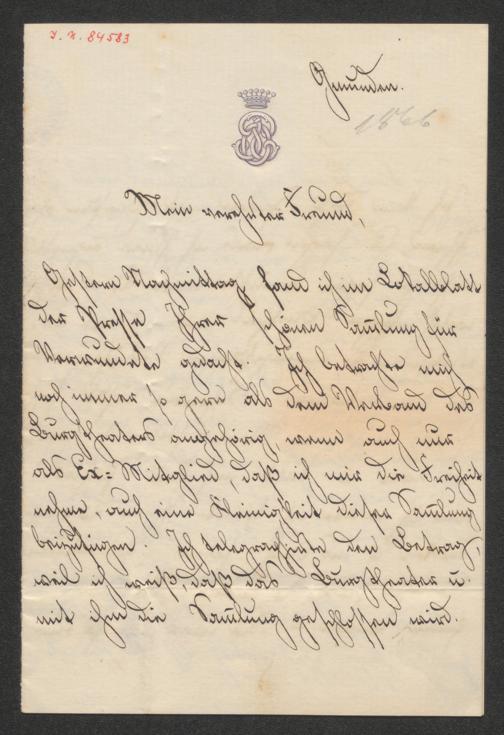 I. N. 84583
Gmunden.
1866
Mein verehrter Freund,
Gestern Nachmittag fand ich im Lokalblatt
der Presse Ihrer schönen Sam̅lung für
Verwundete gedacht. Ich betrachte mich
noch immer so gern als dem Verband des
Burgtheaters angehörig, wenn auch nur
als Ex-Mitglied, daß ich mir die Freiheit
nehme, auch eine Kleinigkeit dieser Sam̅lung
beizufügen. Ich telegraphirte den Betrag,
weil ich weiß, daß das Burgtheater u.
mit ihm die Sam̅lung geschlossen wird.